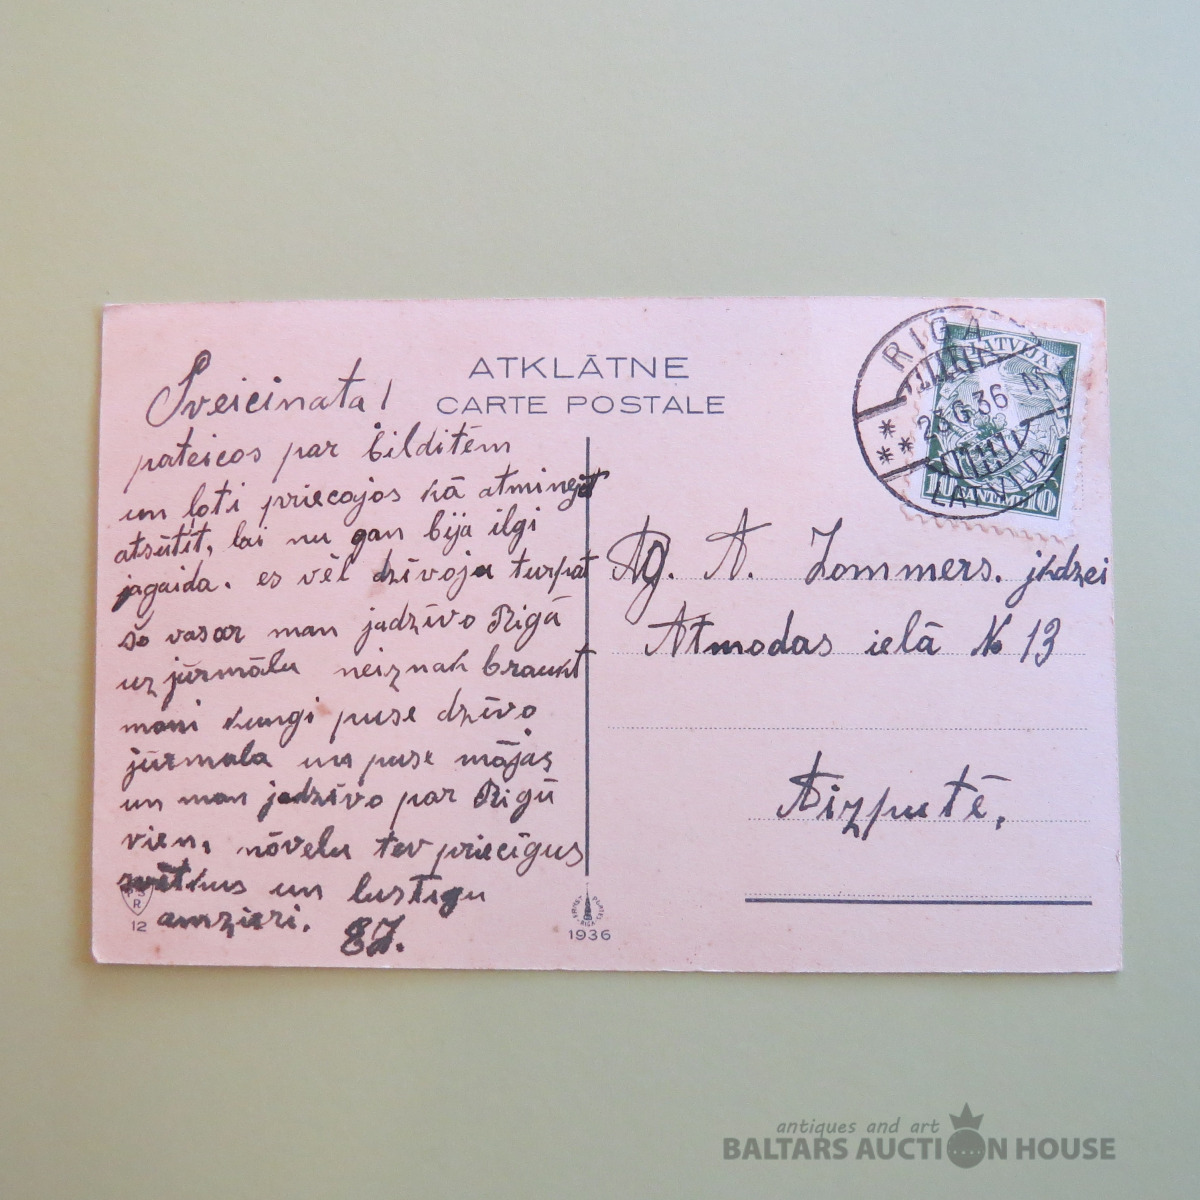 ATKLĀTNE
CARTE POSTALE
Sveicinata!
pateicos par bilditēm
un ļoti priecajos kā atminejat
atsūtīt, lai nu gan bija ilgi
jagaida. es vēl dzīvoju turpat
šo vasar man jadzīvo Rigā
uz jūrmālu neiznak braukt
mani kungi puse dzīvo
jūrmala un puse mājas
un man jadzīvo par Rigū
vien, nōvelu tev priecīgus
svētkus un lustigu
amzieri. EJ.
R
12
1936
RIGA
23 6 36
LATVIJA
LATVIJA
10 10
Ag. A. Zommers. jkdzei
Atmodas ielā № 13
Aizputē.
antiques and art
BALTARS AUCTION HOUSE